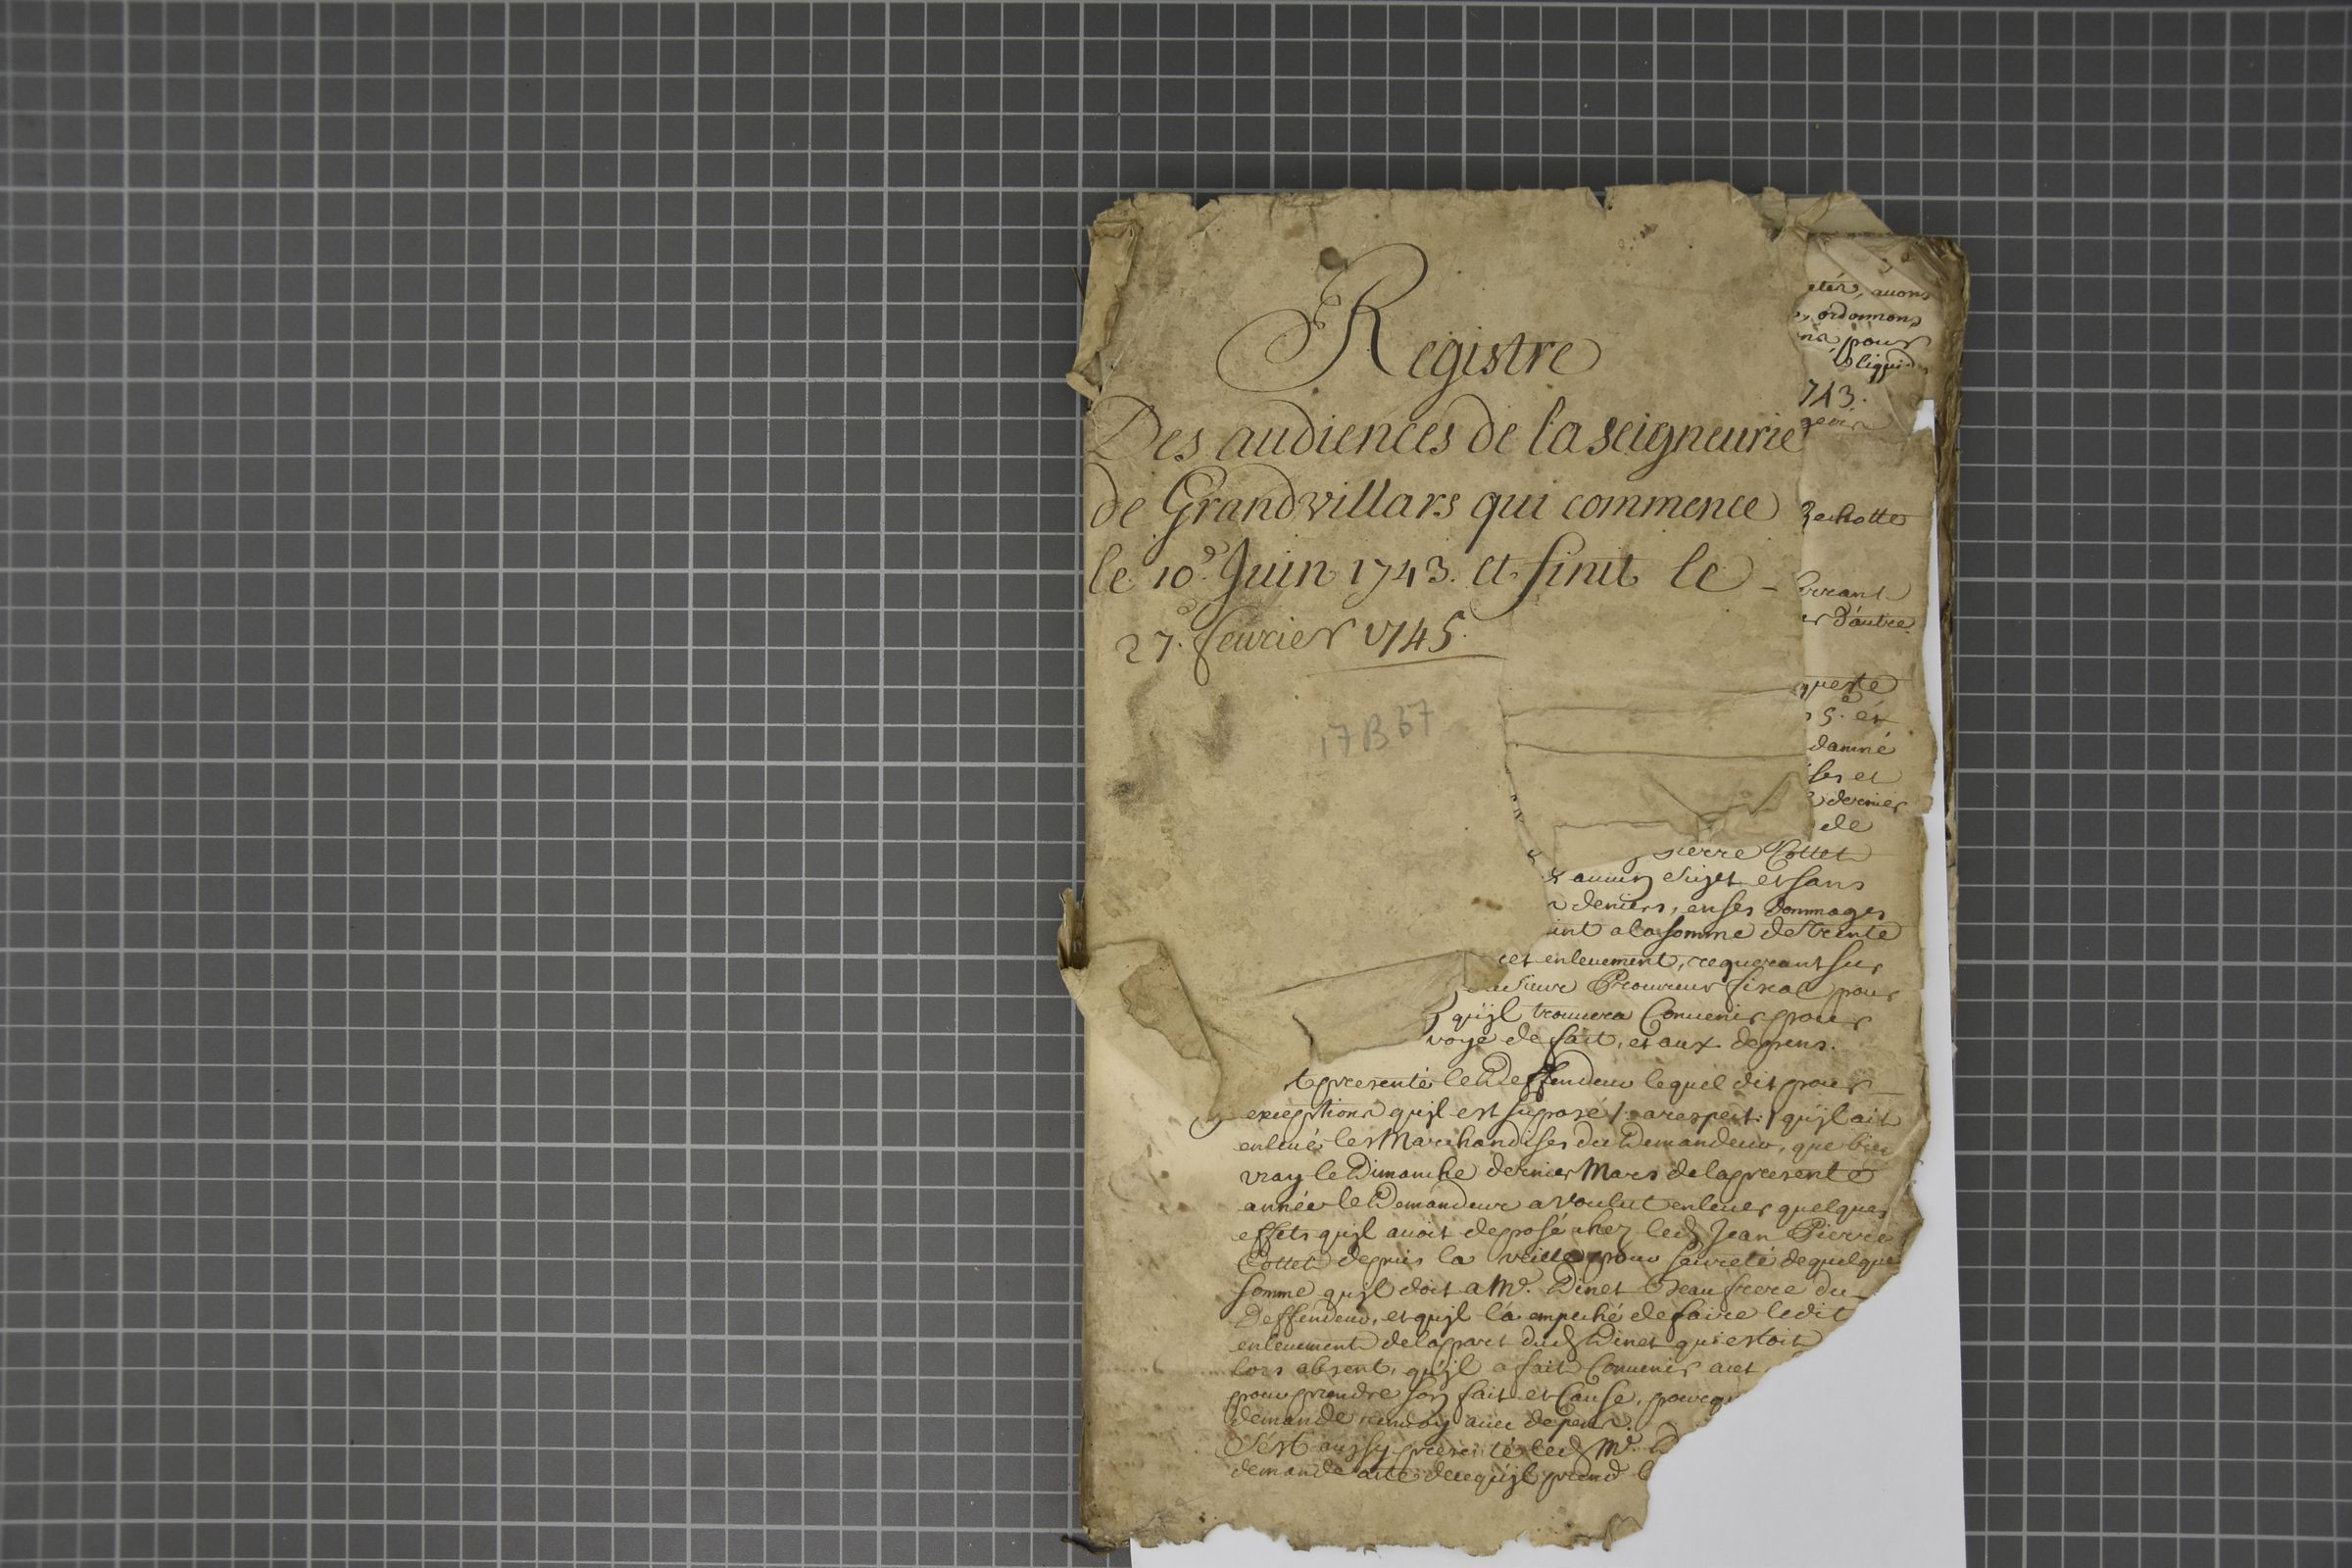 Registre
Des audiences de la seigneurie
de Grandvillars qui commence
le 10.e Juin 1743. et finit le -
27.e fevrier 1745.
17 B 67
auons
ordonnons
pour
743.
d'autre
queste
5. et
damné
et
dernier
de
pierre Cottet
aucun Sujet et sans
deniers, en ses dommages
int a la somme de Trente
cet enleuement, requerant sur
Procureur fiscal pour
qu'jl trouuera Conuenir pour
voye de fait, et aux depens.
t presenté le Deffendeur lequel dit pour
exceptions qu'jl est suposé /: a respect :/ qu'jl ait
enleué les Marchandises du Demandeur, que bien
vray le Dimanche dernier Mars de la presente
année le Demandeur a Voulut enleuer quelques
effets qu'jl auoit deposé chez led. Jean Pierre
Cottet depuis la veille pour seureté de quelque
somme qu'jl doit a Mr. Dinet Beaufrere du
Deffendeur, et qu'jl l'a empeché de faire ledit
enleuement de la part dud. Dinet qui estoit
lors absent, qu'jl a fait Conuenir a cet
pour prendre son fait et Cause, pourqu
demande renuoy auec depens.
S'est aussy presenté led. Mr. D
demande acte de ce qu'jl prend l